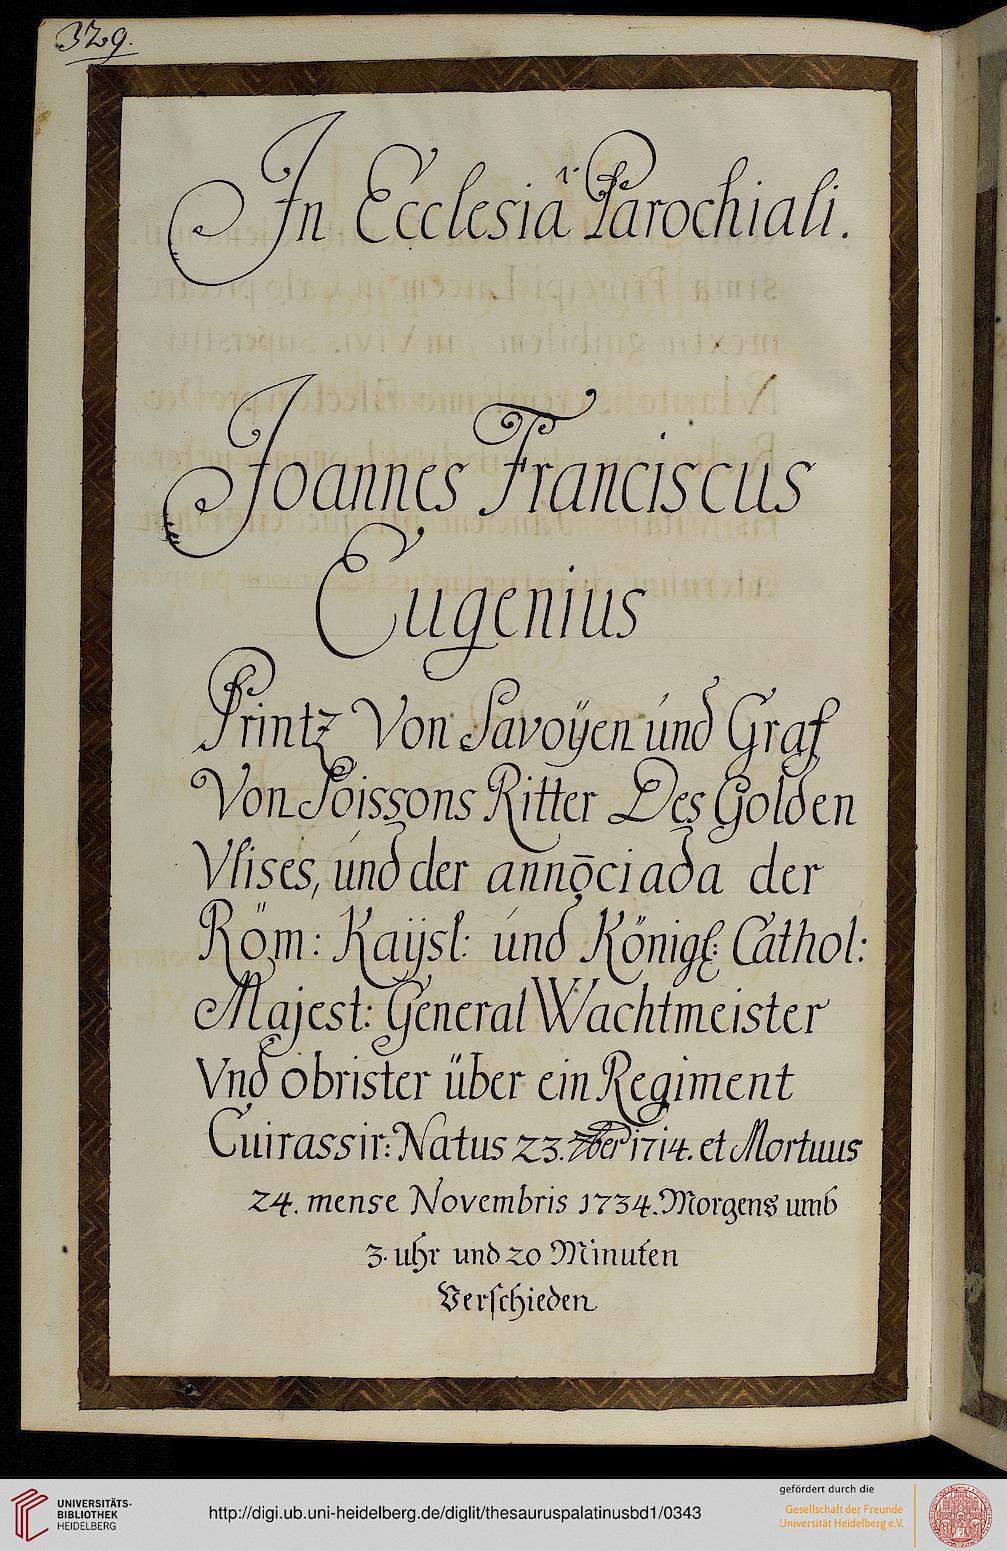 329.
In Ecclesiâ Parochiali.
Joannes Franciscus
Eugenius
Printz Von Savoÿen und Graf
Von Soissons Ritter Des Golden
Vlises, und der annōciada der
Röm: Kaÿsl: und Königl: Cathol:
Majest: General Wachtmeister
Vnd obrister über ein Regiment
Cuirassir: Natus 23. 7ber 1714. et Mortuus
24. mense Novembris 1734. Morgens umb
3. uhr und 20 Minuten
Verschieden
UNIVERSITÄTS-
BIBLIOTHEK
HEIDELBERG
http://digi.ub.uni-heidelberg.de/diglit/thesauruspalatinusbd1/0343
gefördert durch die
Gesellschaft der Freunde
Universität Heidelberg e.V.